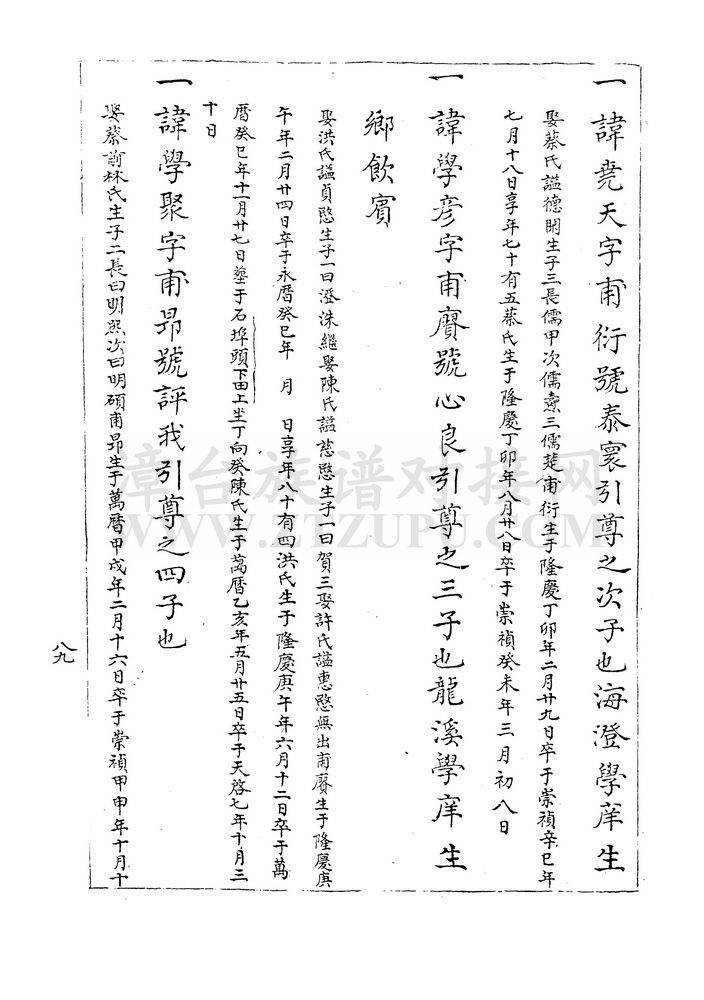 一諱堯天字甫衍號泰寰引尊之次子也海澄學庠生
娶蔡氏諡德閑生子三長儒甲次儒憙三儒楚甫衍生于隆慶丁卯年二月廿九日卒于崇禎辛巳年
七月十八日享年七十有五蔡氏生于隆慶丁卯年八月廿八日卒于崇禎癸未年三月初八日
一諱學彥字甫賡號心良引尊之三子也龍溪學庠生
鄉飲賓
娶洪氏諡貞慜生子一曰澄洙繼娶陳氏諡慈慜生子一曰賀三娶許氏諡惠慜無出甫賡生于隆慶庚
午年二月廿四日卒于永曆癸巳年 月 日享年八十有四洪氏生于隆慶庚午年六月十二日卒于萬
曆癸巳年十一月廿七日塟于石埠頭下田上坐丁向癸陳氏生于萬曆乙亥年五月廿五日卒于天啓七年十月三
十日
一諱學聚字甫昴號評我引尊之四子也
娶蔡前林氏生子二長曰明熙次曰明碩甫昴生于萬曆甲戌年二月十六日卒于崇禎甲申年十月十
八九
漳台族谱对接网
WWW.ZTZUPU.COM